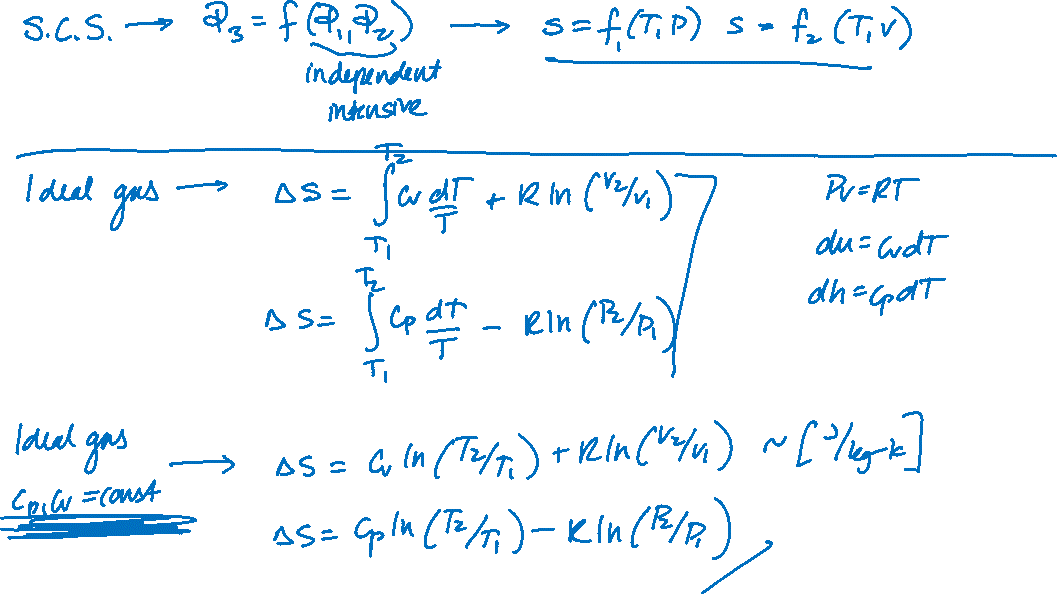 S.C.S. → Φ₃ = f(Φ₁, Φ₂) → s = f₁(T, P) s = f₂(T, v)
independent
intensive
Ideal gas → Δs = ∫_{T₁}^{T₂} Cv dT/T + R ln(v₂/v₁) Pv = RT
du = Cv dT
dh = Cp dT
Δs = ∫_{T₁}^{T₂} Cp dT/T − R ln(P₂/P₁)
Ideal gas
Cp, Cv = const → Δs = Cv ln(T₂/T₁) + R ln(v₂/v₁) ~ [J/kg-K]
Δs = Cp ln(T₂/T₁) − R ln(P₂/P₁)